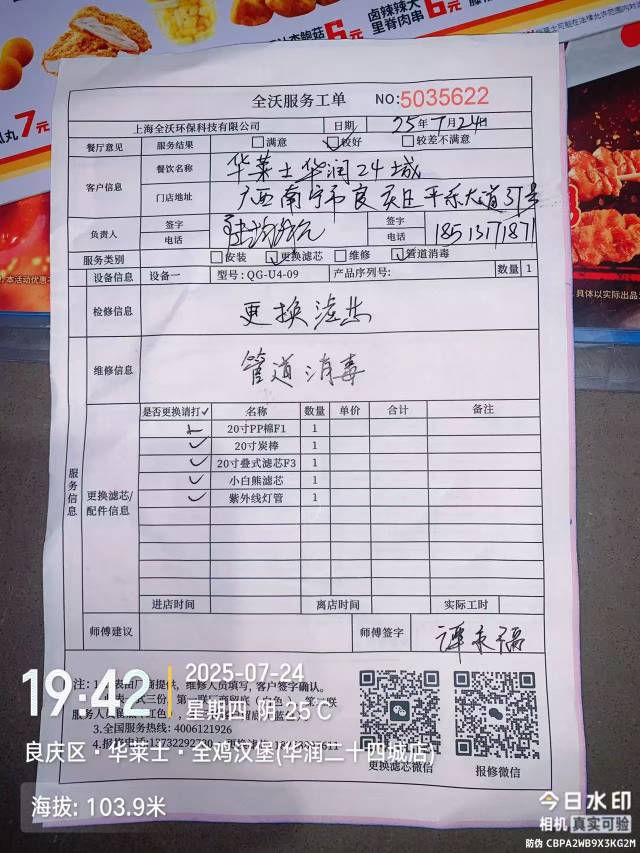 卤辣辣大
里脊肉串 6元
6元
丸7元
全沃服务工单 NO:5035622
上海全沃环保科技有限公司 日期 25年7月24日
餐厅意见 服务结果 满意 较好 较差不满意
客户信息 餐饮名称 华莱士华润24城
门店地址 广西南宁市良庆区平乐大道37号
负责人 签字 签字
电话 电话 18513771871
服务类别 安装 更换滤芯 维修 管道消毒
设备信息 设备一 型号:QG-U4-09 产品序列号: 数量 1
检修信息 更换滤芯
维修信息 管道消毒
服务信息
更换滤芯/配件信息
是否更换请打✓ 名称 数量 单价 合计 备注
✓ 20寸PP棉F1 1
✓ 20寸炭棒 1
✓ 20寸叠式滤芯F3 1
✓ 小白熊滤芯 1
✓ 紫外线灯管 1
进店时间 离店时间 实际工时
师傅建议 师傅签字
注:1. 维修人员填写,客户签字确认。
3.全国服务热线:4006121926
更换滤芯微信 报修微信
19:42
2025-07-24
星期四 阴 25℃
良庆区·华莱士·全鸡汉堡(华润二十四城店)
海拔:103.9米
今日水印
相机 真实可验
防伪 CBPA2WB9X3KG2M
具体以实际出品